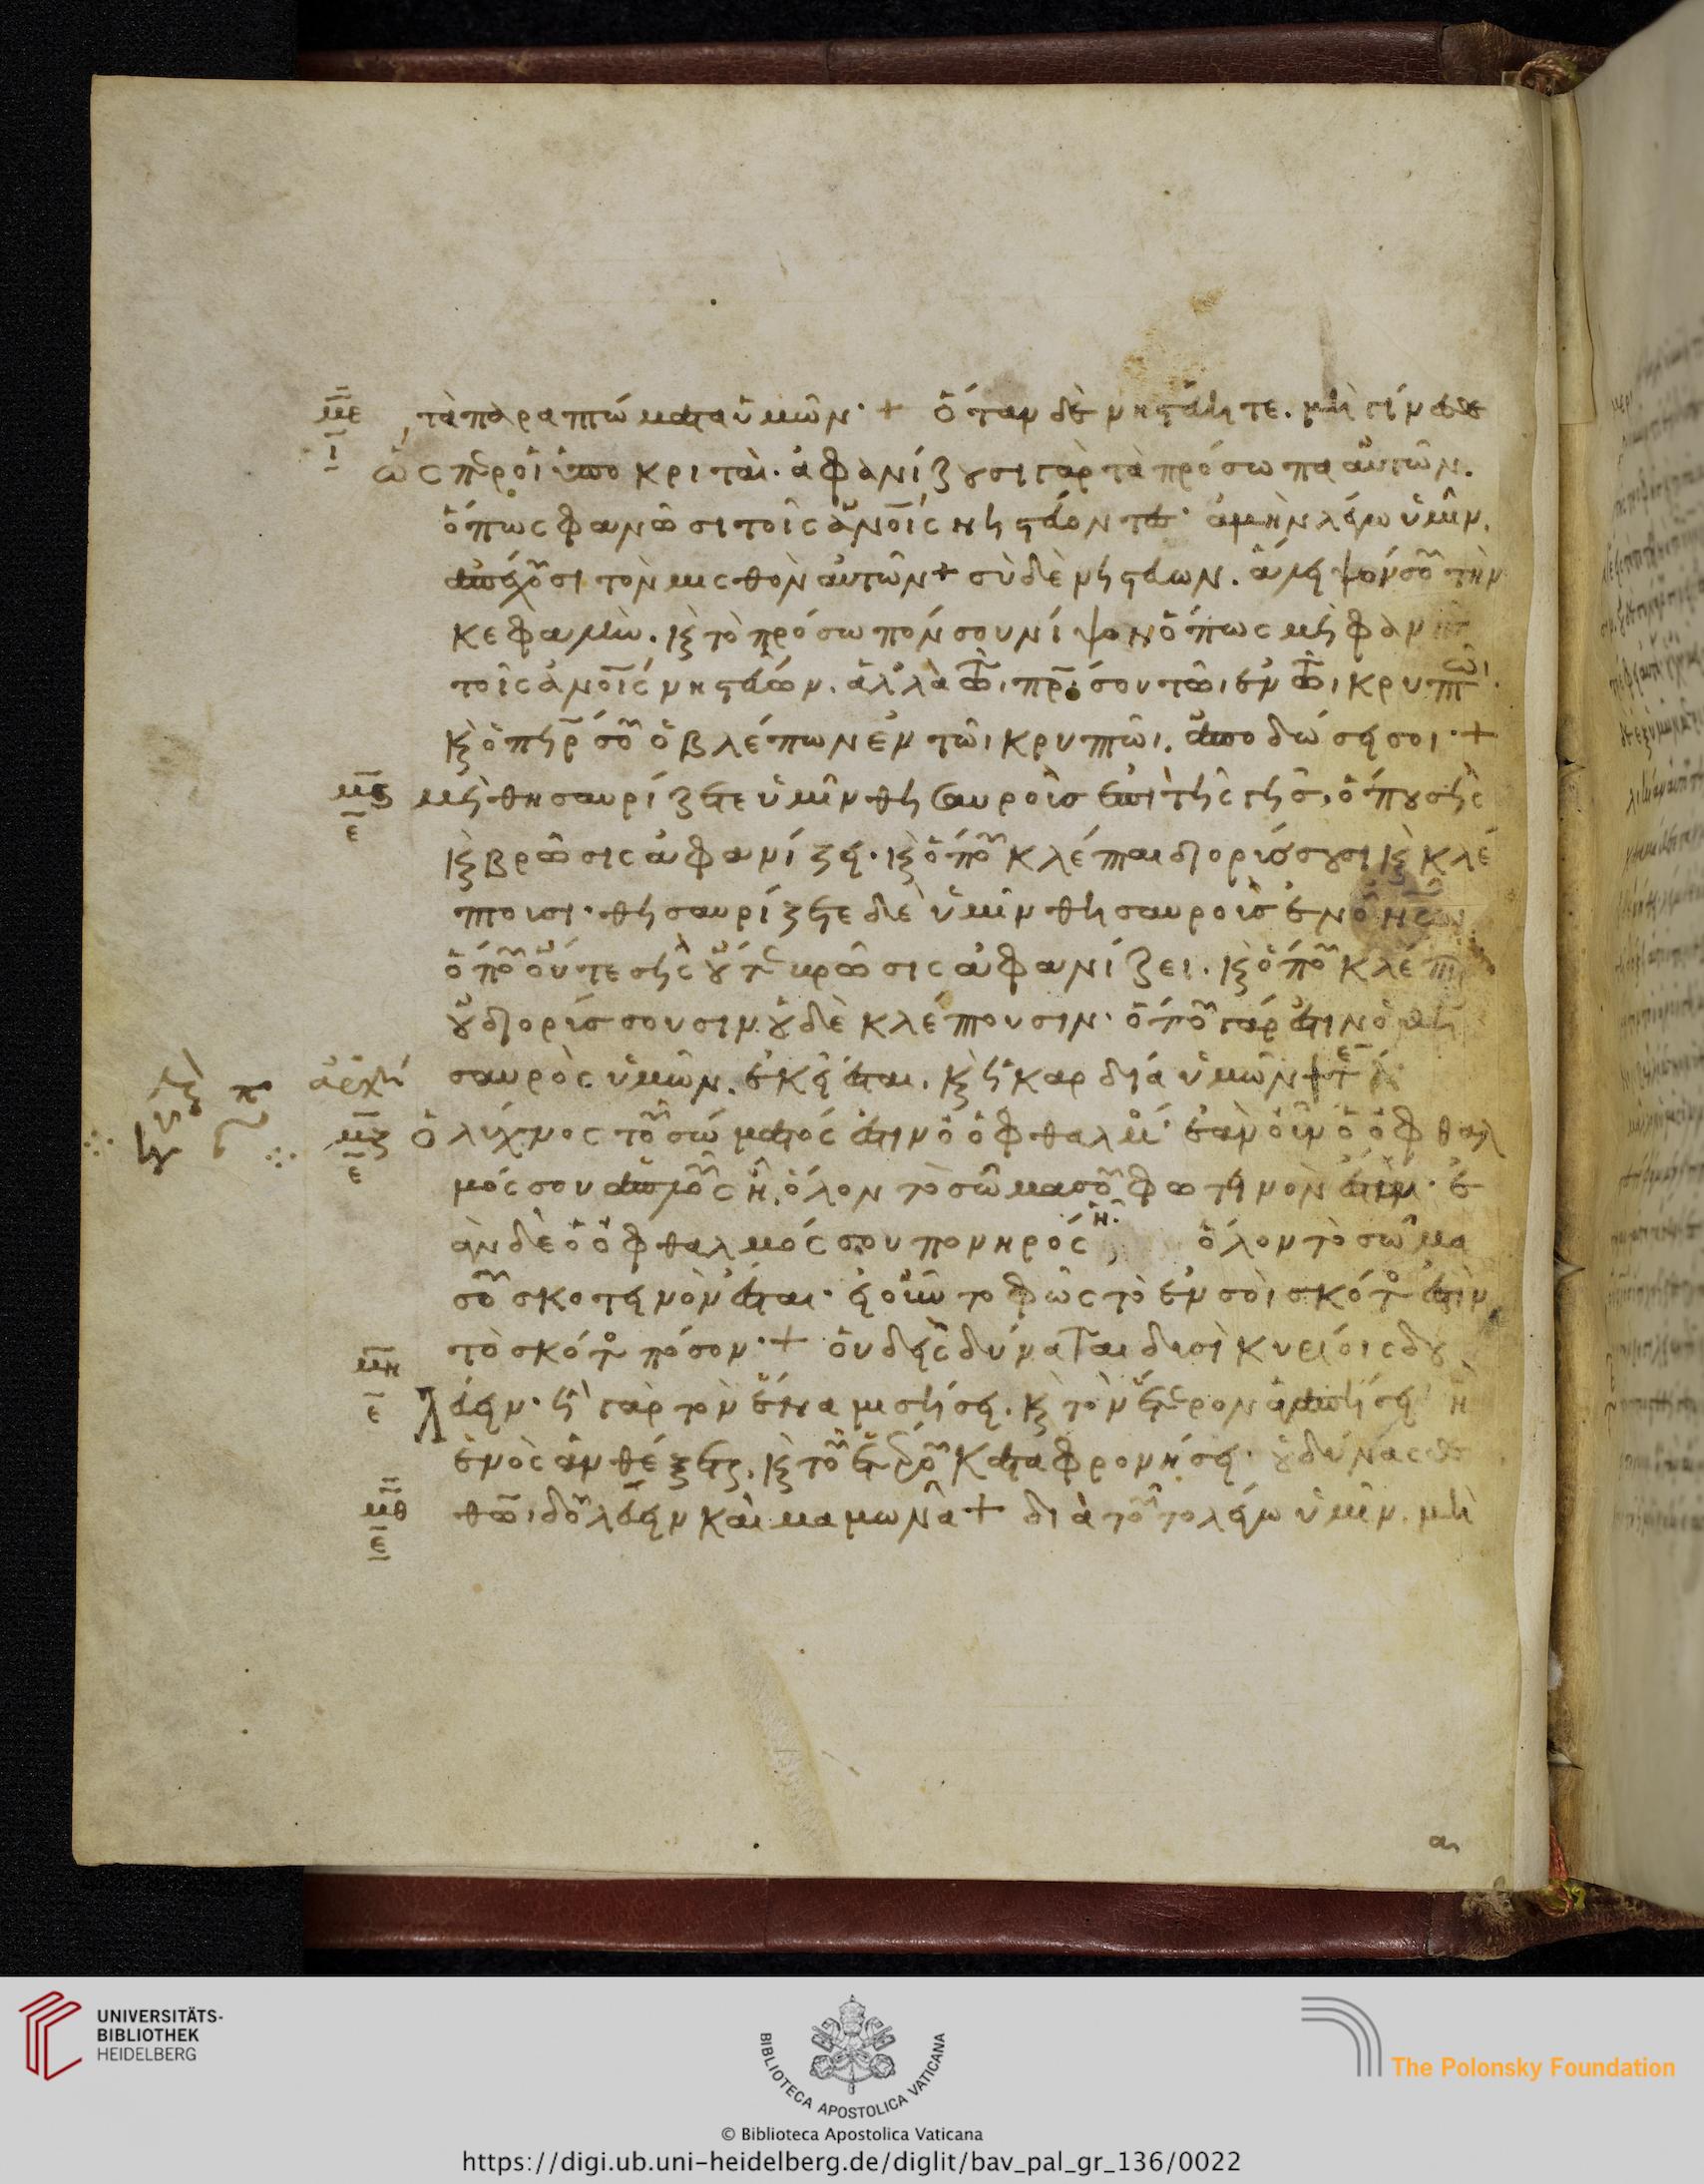 με τὰ παραπτώματα ὑμῶν· + ὅταν δὲ νηστεύητε. μὴ γίνεσθε
ι ὥσπερ οἱ ὑποκριταὶ· ἀφανίζουσι γὰρ τὰ πρόσωπα αὐτῶν.
ὅπως φανῶσι τοῖς ἀνοις νηστεύοντες· ἀμὴν λέγω ὑμῖν.
ἀπέχουσι τὸν μισθὸν αὐτῶν + σὺ δὲ νηστεύων. ἄλειψόν σου τὴν
κεφαλὴν. κ τὸ πρόσωπόν σου νίψον ὅπως μὴ φανῆς
τοῖς ἀνοις νηστεύων. ἀλλὰ τῶι πρι σου τῶι ἐν τῶι κρυπτῶι.
κ ὁ πηρ σου ὁ βλέπων ἐν τῶι κρυπτῶι. ἀποδώσει σοι· +
μϛ μὴ θησαυρίζετε ὑμῖν θησαυροὺς ἐπὶ τῆς γῆς, ὅπου σὴς
ε κ βρῶσις ἀφανίζει. κ ὅπου κλέπται διορύσσουσι κ κλέ
πτουσι· θησαυρίζετε δὲ ὑμῖν θησαυροὺς ἐν
ὅπου οὔτε σὴς οὔτε βρῶσις ἀφανίζει. κ ὅπου κλέπτ
οὐ διορύσσουσιν οὐδὲ κλέπτουσιν· ὅπου γάρ ἐστιν ὁ θη
ἀρχὴ σαυρὸς ὑμῶν. ἐκεῖ ἔσται. κ ἡ καρδία ὑμῶν
μζ ὁ λύχνος τοῦ σώματός ἐστιν ὁ ὀφθαλμός· ἐὰν οὖν ὁ ὀφθαλ
ε μός σου ἁπλοῦς ἦ, ὅλον τὸ σῶμα σου φωτεινὸν ἐστιν· ἐ
ὰν δὲ ὁ ὀφθαλμός σου πονηρός ἦ. ὅλον τὸ σῶμα
σου σκοτεινὸν ἔσται· εἰ οὖν το φῶς τὸ ἐν σοὶ σκότος ἐστὶν,
μη τὸ σκότος πόσον· + οὐδεὶς δύναται δυσὶ κυρίοις δου
ε λεύειν· ἢ γὰρ τὸν ἕνα μισήσει. κ τὸν ἕτερον ἀγαπήσει ἢ
ἑνὸς ἀνθέξεται. κ τοῦ ἑτέρου καταφρονήσει· οὐ δύνασθε
μθ θωι δουλεύειν καὶ μαμωνᾶ + διὰ τοῦτο λέγω ὑμῖν. μὴ
ε
UNIVERSITÄTS-
BIBLIOTHEK
HEIDELBERG
BIBLIOTECA APOSTOLICA VATICANA
The Polonsky Foundation
© Biblioteca Apostolica Vaticana
https://digi.ub.uni-heidelberg.de/diglit/bav_pal_gr_136/0022